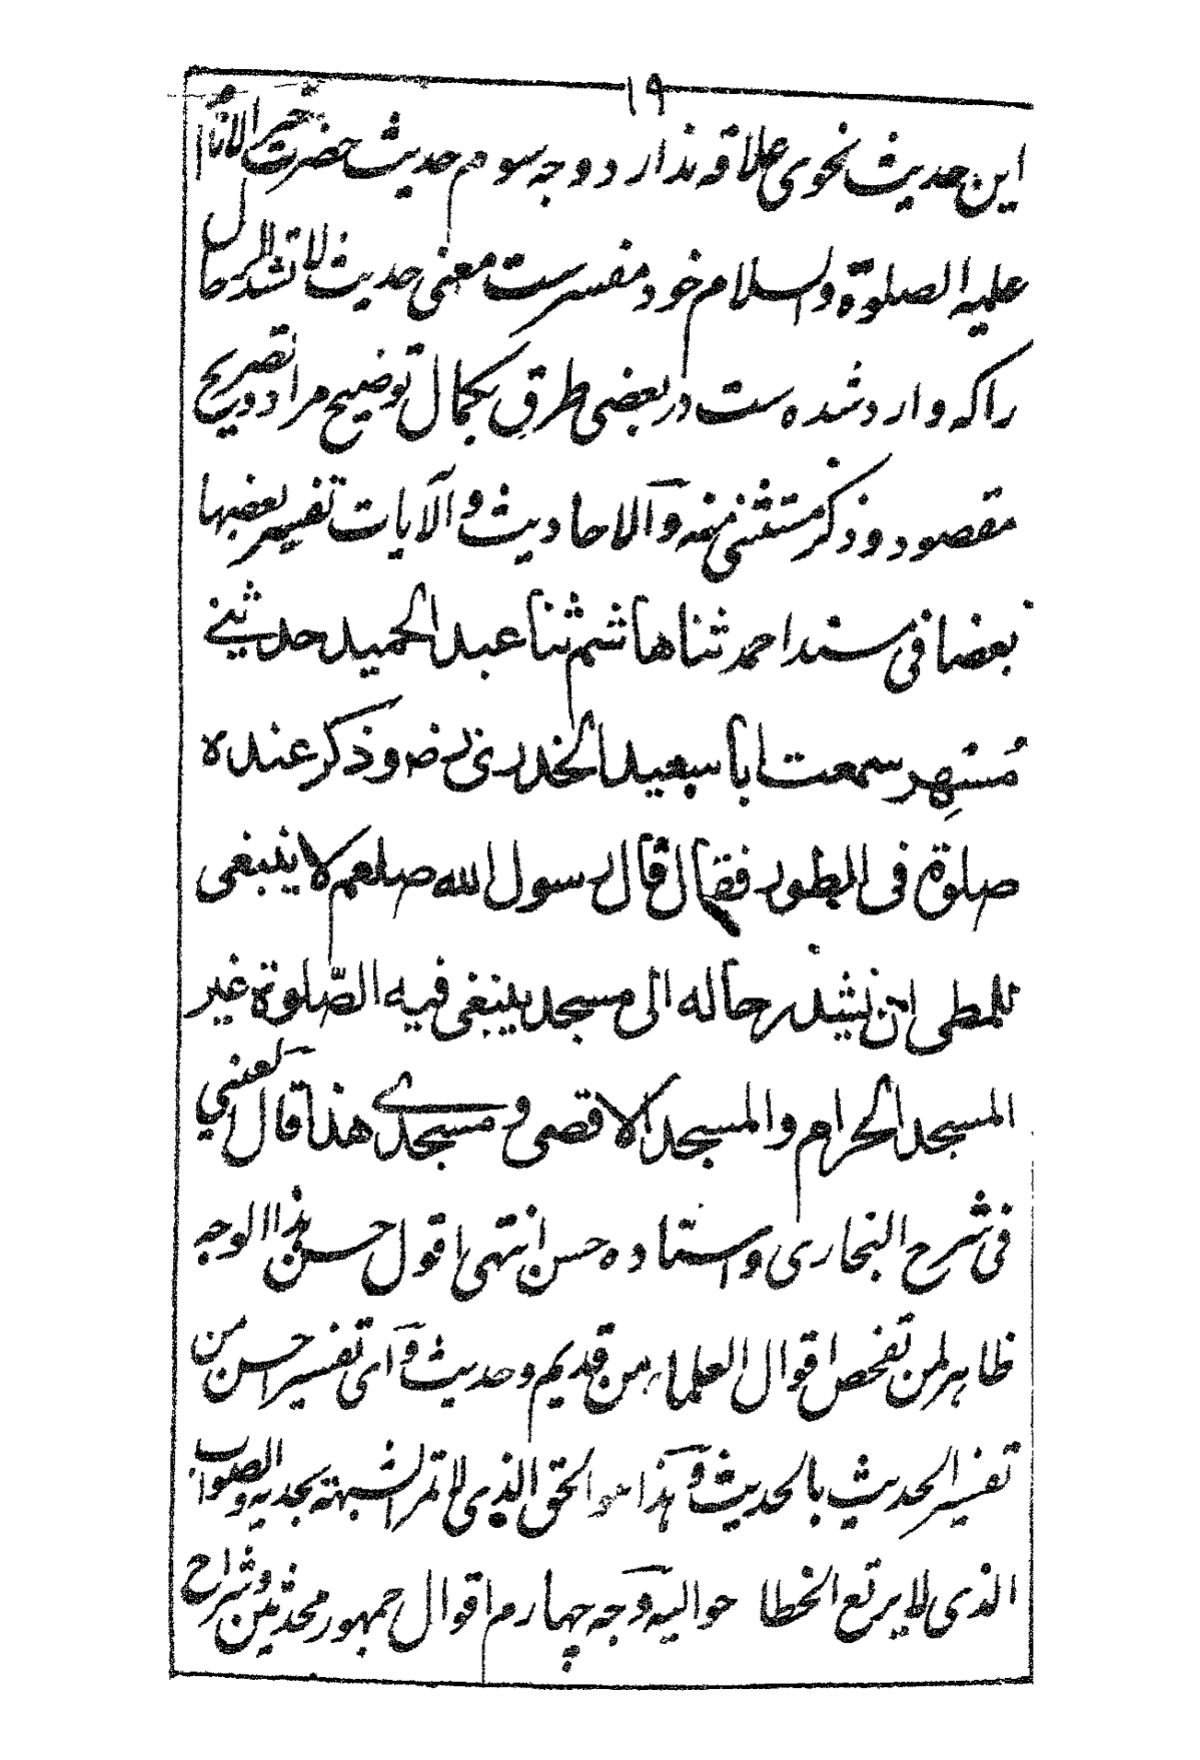 ١٩
این حدیث نحوی علاقه ندارد وجه سوم حدیث حضرت خیر الانام
علیه الصلوة والسلام خود مفسرست معنی حدیث لا تشد الرحال
را که وارد شده ست در بعضی طرق بکمال توضیح مراد و تصریح
مقصود و ذکر مستثنی منه و الاحادیث و الآیات تفسیر بعضها
بعضا فی مسند احمد ثنا هاشم ثنا عبد الحمید حدثنی
مُشهِر سمعت ابا سعید الخدری رض و ذکر عنده
صلوة فی الطور فقال قال رسول الله صلعم لا ینبغی
للمطی ان تشد رحاله الی مسجد ینبغی فیه الصّلوة غیر
المسجد الحرام والمسجد الاقصی و مسجدی هذا قال العینی
فی شرح البخاری واسناده حسن انتهی اقول حسن هذا الوجه
ظاهر لمن تفحص اقوال العلماء من قدیم وحدیث و ای تفسیر احسن من
تفسیر الحدیث بالحدیث و هذا هو الحق الذی لا تمر الشبهة بجدیه والصواب
الذی لا یرتع الخطا حوالیه وجه چهارم اقوال جمهور محدثین و شراح